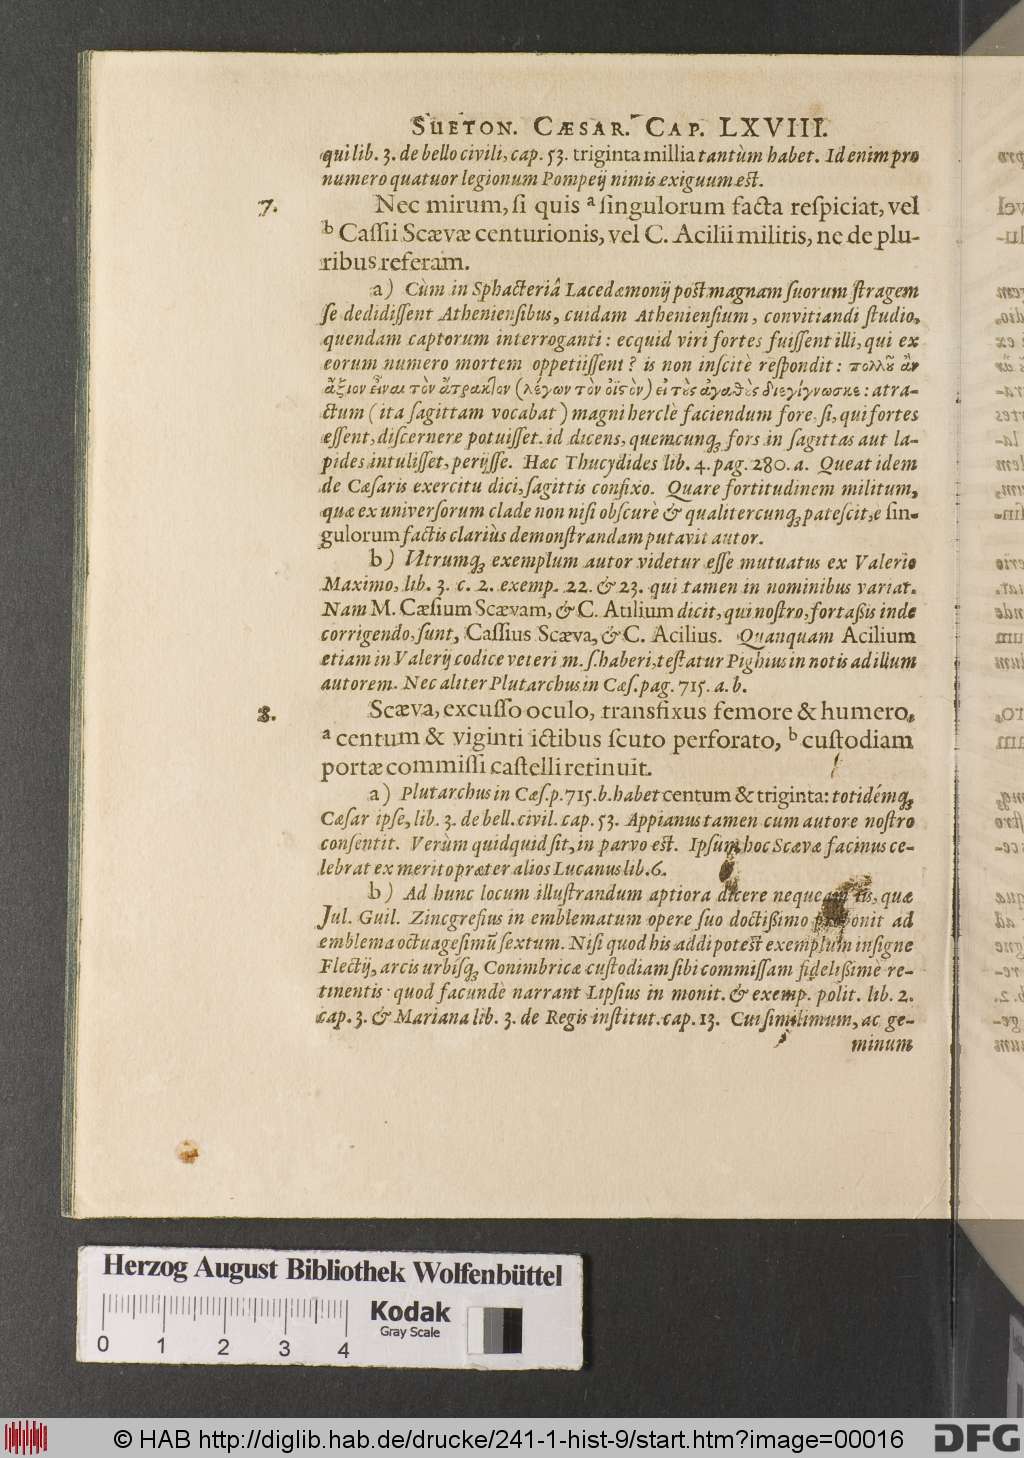 SUETON. CÆSAR. CAP. LXVIII.
qui lib. 3. de bello civili, cap. 53. triginta millia tantùm habet. Id enim pro
numero quatuor legionum Pompeij nimis exiguum est.
7. Nec mirum, ſi quis a ſingulorum facta reſpiciat, vel
b Caſſii Scævæ centurionis, vel C. Acilii militis, ne de plu-
ribus referam.
a) Cùm in Sphacteriâ Lacedæmonij post magnam ſuorum ſtragem
ſe dedidiſſent Athenienſibus, cuidam Athenienſium, convitiandi ſtudio,
quendam captorum interroganti: ecquid viri fortes fuiſſent illi, qui ex
eorum numero mortem oppetiiſſent? is non inſcitè reſpondit: πολλοῦ ἂν
ἄξιον εἶναι τὸν ἄτρακτον (λέγων τὸν οἰστὸν) εἰ τὸς ἀγαθὸς διεγίγνωσκε: atra-
ctum (ita ſagittam vocabat) magni herclè faciendum fore, ſi, qui fortes
eſſent, diſcernere potuiſſet. id dicens, quemcunq; fors in ſagittas aut la-
pides intuliſſet, perijſſe. Hæc Thucydides lib. 4. pag. 280. a. Queat idem
de Cæſaris exercitu dici, ſagittis confixo. Quare fortitudinem militum,
quæ ex univerſorum clade non niſi obſcurè & qualitercunq; pateſcit, e ſin-
gulorum factis clariùs demonſtrandam putavit autor.
b) Utrumq; exemplum autor videtur eſſe mutuatus ex Valerio
Maximo, lib. 3. c. 2. exemp. 22. & 23. qui tamen in nominibus variat.
Nam M. Cæſium Scævam, & C. Atilium dicit, qui noſtro, fortaßis inde
corrigendo, ſunt, Caſſius Scæva, & C. Acilius. Quanquam Acilium
etiam in Valerij codice veteri m. ſ. haberi, teſtatur Pighius in notis ad illum
autorem. Nec aliter Plutarchus in Cæſ. pag. 715. a. b.
8. Scæva, excuſſo oculo, transfixus femore & humero,
a centum & viginti ictibus ſcuto perforato, b cuſtodiam
portæ commiſſi caſtelli retinuit.
a) Plutarchus in Cæſ. p. 715. b. habet centum & triginta: totidémq;
Cæſar ipſe, lib. 3. de bell. civil. cap. 53. Appianus tamen cum autore noſtro
conſentit. Verùm quidquid ſit, in parvo est. Ipſum hoc Scævæ facinus ce-
lebrat ex merito præter alios Lucanus lib. 6.
b) Ad hunc locum illuſtrandum aptiora dicere nequeam iis, quæ
Jul. Guil. Zincgrefius in emblematum opere ſuo doctißimo proponit ad
emblema octuageſimũ ſextum. Niſi quod his addi potest exemplum inſigne
Flectij, arcis urbiſq; Conimbricæ cuſtodiam ſibi commiſſam fidelißimè re-
tinentis: quod facundè narrant Lipſius in monit. & exemp. polit. lib. 2.
cap. 3. & Mariana lib. 3. de Regis inſtitut. cap. 13. Cui ſimilimum, ac ge-
minum
Herzog August Bibliothek Wolfenbüttel
Kodak
Gray Scale
0 1 2 3 4
© HAB http://diglib.hab.de/drucke/241-1-hist-9/start.htm?image=00016
DFG